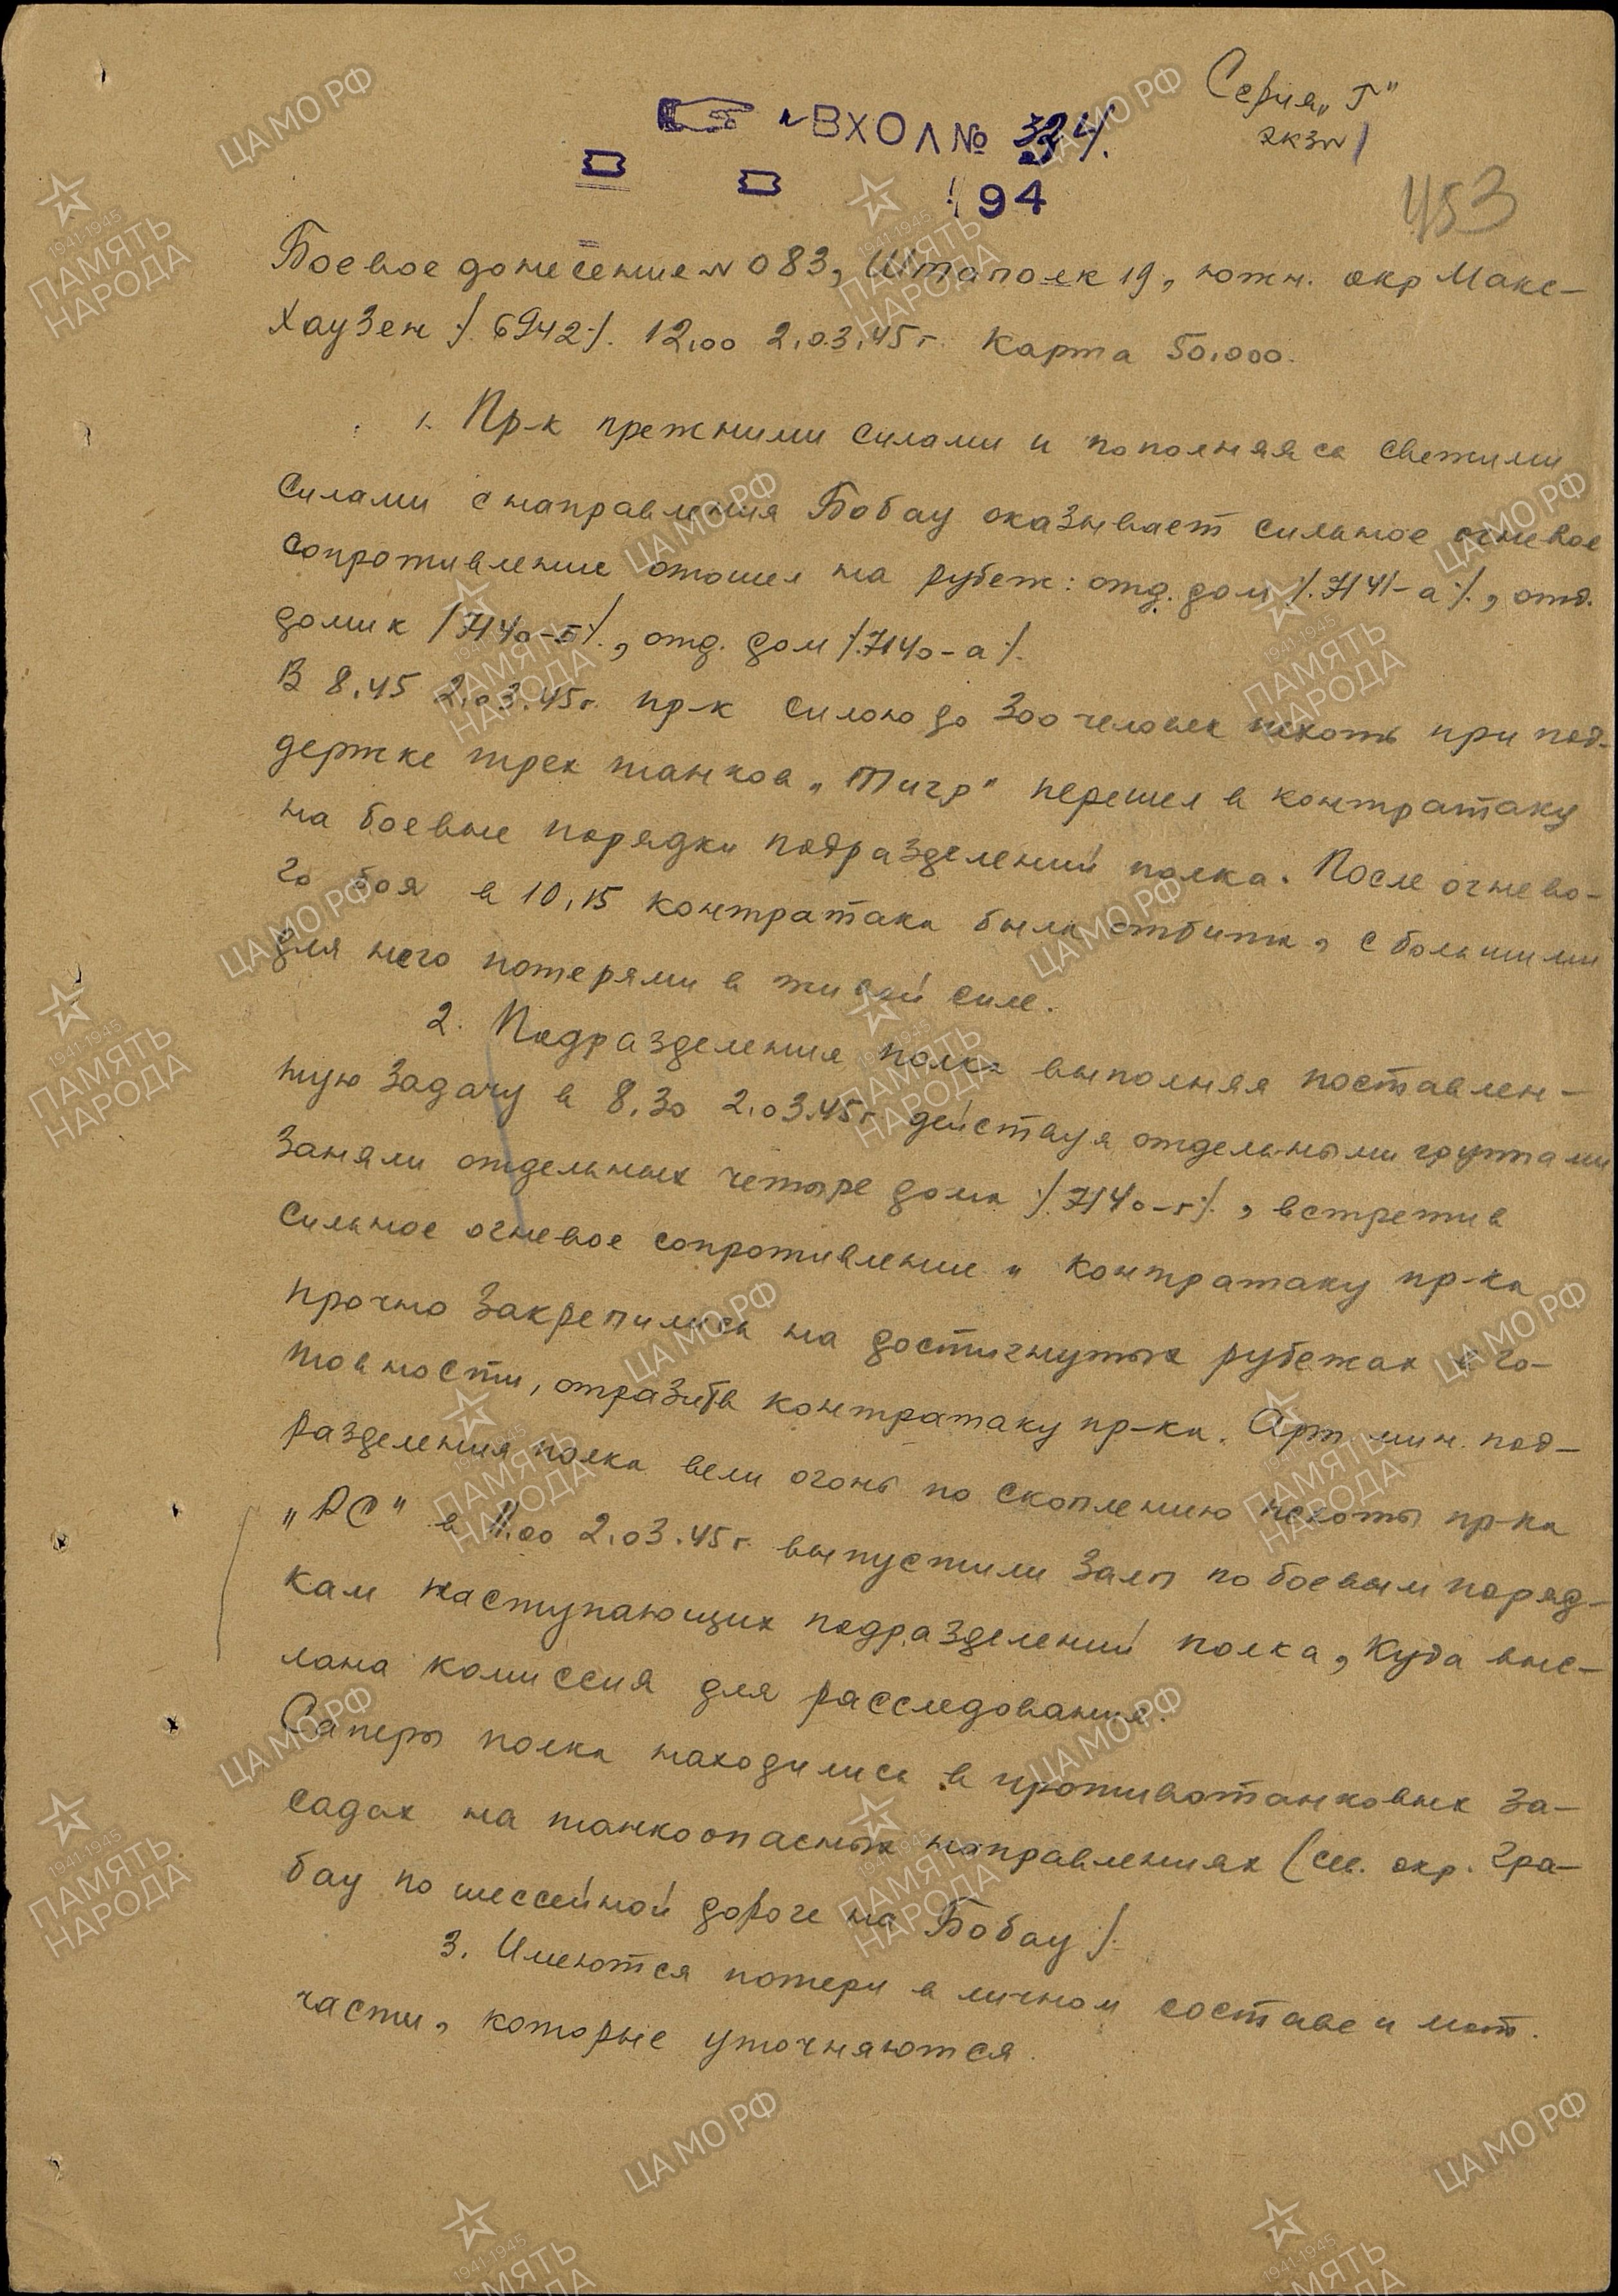 Серия „Г"
экз № 1
ВХОД № 324.
194
453
Боевое донесение № 083, Штаполк 19, южн. окр Макс-
Хаузен /.6942/. 12.00 2.03.45г. Карта 50.000.
1. Пр-к прежними силами и пополняясь свежими
силами с направления Бобау оказывает сильное огневое
сопротивление отошел на рубеж: отд. дом /.7141-а/., отд.
домик /7140-б/., отд. дом /.7140-а/.
В 8.45 2.03.45г. пр-к силою до 300 человек пехоты при под-
держке трех танков „Тигр" перешел в контратаку
на боевые порядки подразделений полка. После огнево-
го боя в 10.15 контратака была отбита, с большими
для него потерями в живой силе.
2. Подразделения полка выполняя поставлен-
ную задачу в 8.30 2.03.45г. действуя отдельными группами
заняли отдельных четыре дома /.7140-г/., встретив
сильное огневое сопротивление и контратаку пр-ка
прочно закрепились на достигнутых рубежах в го-
товности, отразить контратаку пр-ка. Арт мин. под-
разделения полка вели огонь по скоплению пехоты пр-ка
„РС" в 11.00 2.03.45г. выпустили залп по боевым поряд-
кам наступающих подразделений полка, куда выс-
лана комиссия для расследования.
Саперы полка находились в противотанковых за-
садах на танкоопасных направлениях (сев. окр. Гра-
бау по шессейной дороге на Бобау /.
3. Имеются потери в личном составе и мат.
части, которые уточняются.
ЦАМО РФ
1941-1945
ПАМЯТЬ
НАРОДА